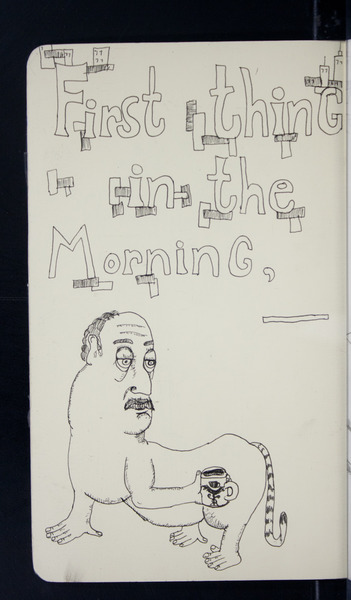 First thinG
in the
MorninG,